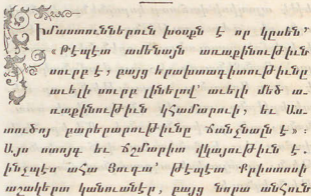 Իմաստուններուն խօսքն է որ կըսեն՝
«Թէպէտ ամենայն առաքինութիւն
սուրբ է, բայց երախտագիտութիւնը
աւելի սուրբ լինելով՝ աւելի մեծ ա-
ռաքինութիւն կհամարուի, եւ Աս-
տուծոյ բարերարութիւնը ճանչնալն է»։
Այս ստոյգ եւ ճշմարիտ վկայութիւն է.
ինչպէս ահա Յուդա՝ թէպէտ Քրիստոսի
աշակերտ կանուանէր, բայց նորա անհուն